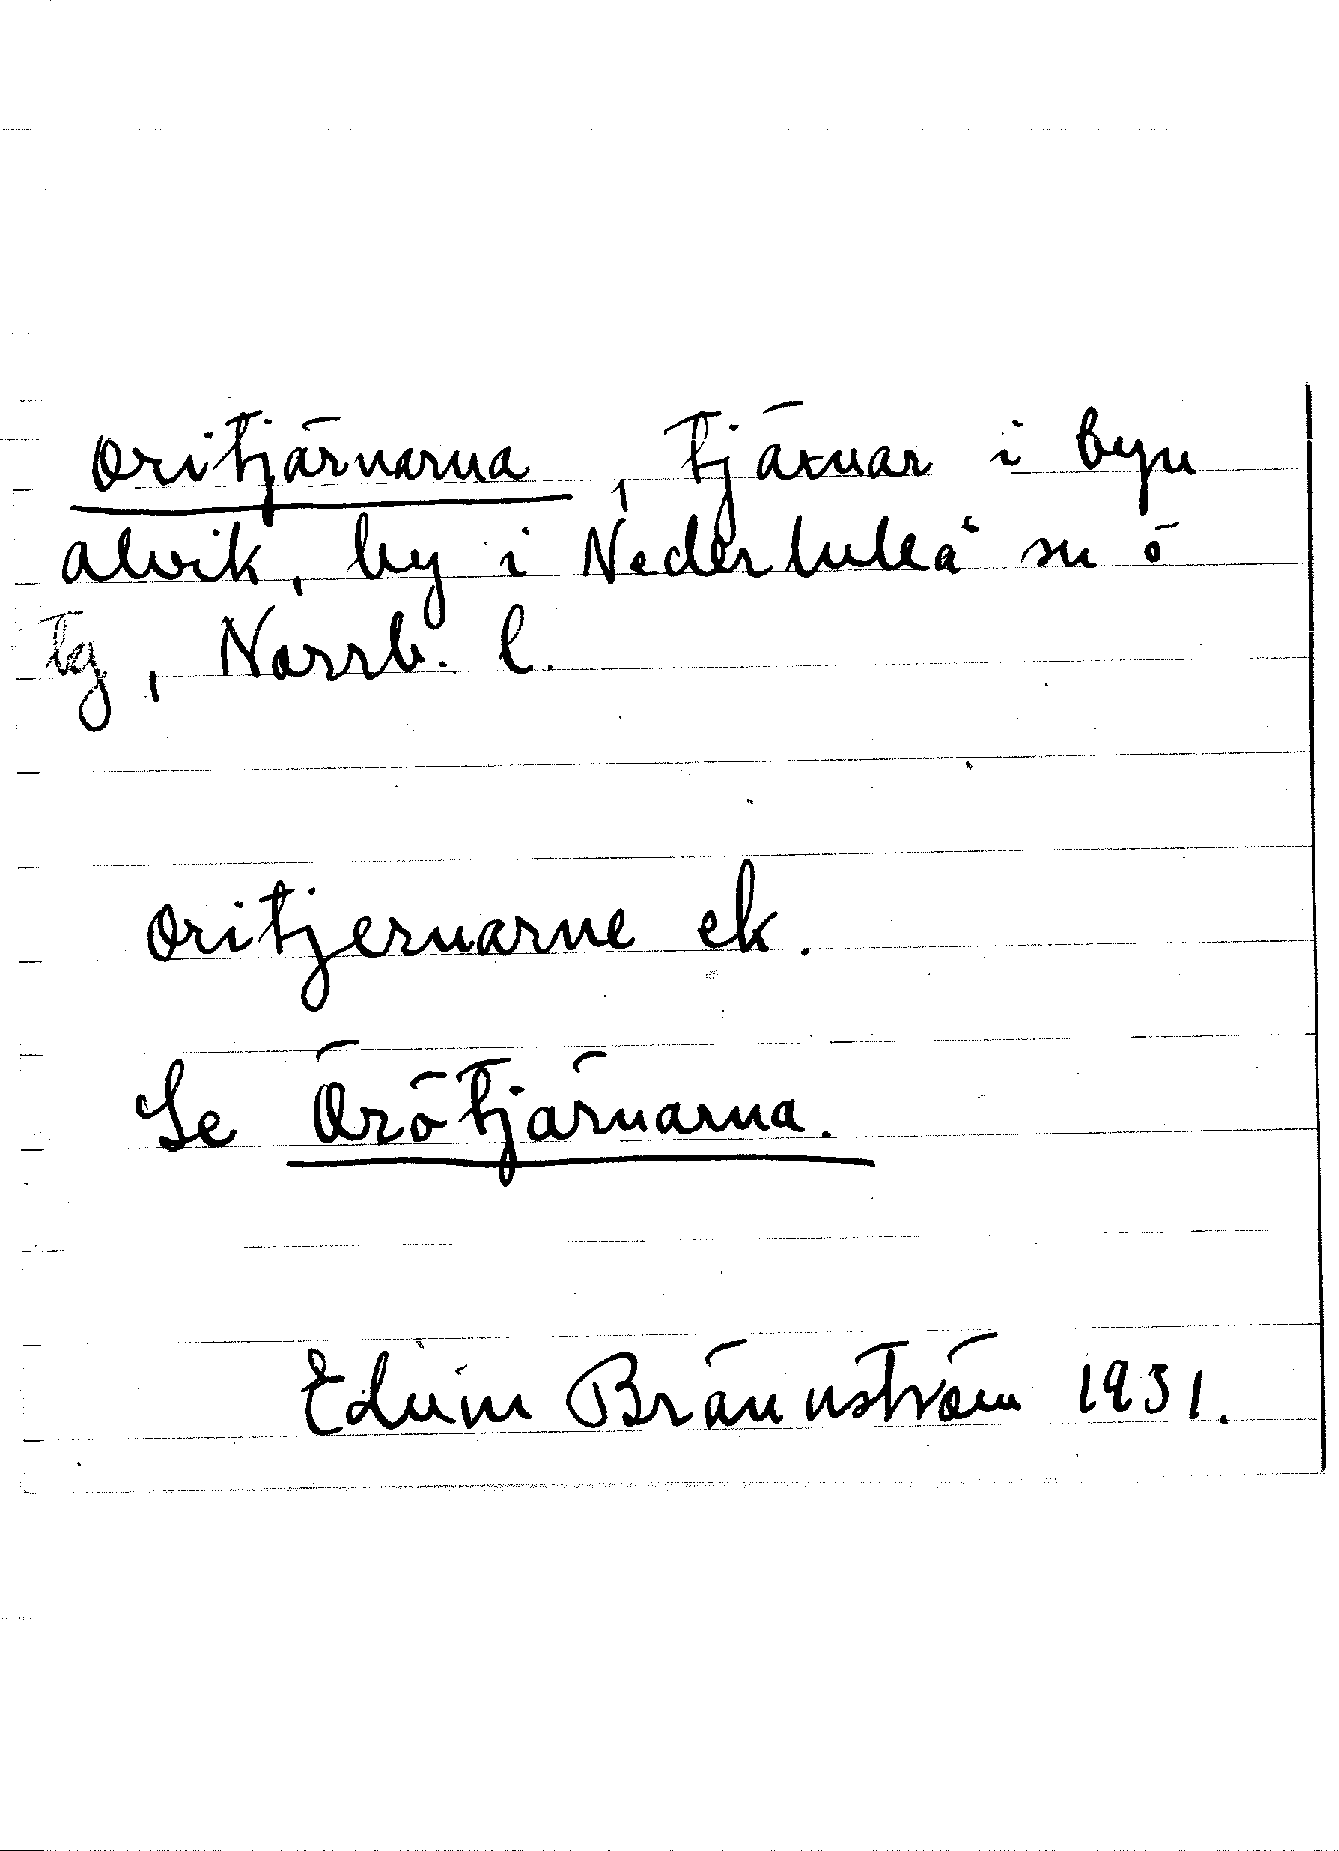 Oritjärnarna, tjärnar i byn
Alvik, by i Nederluleå sn ö
tg, Norrb. l.
Oritjernarne ek.
Se Örötjärnarna.
Edvin Brännström 1931.